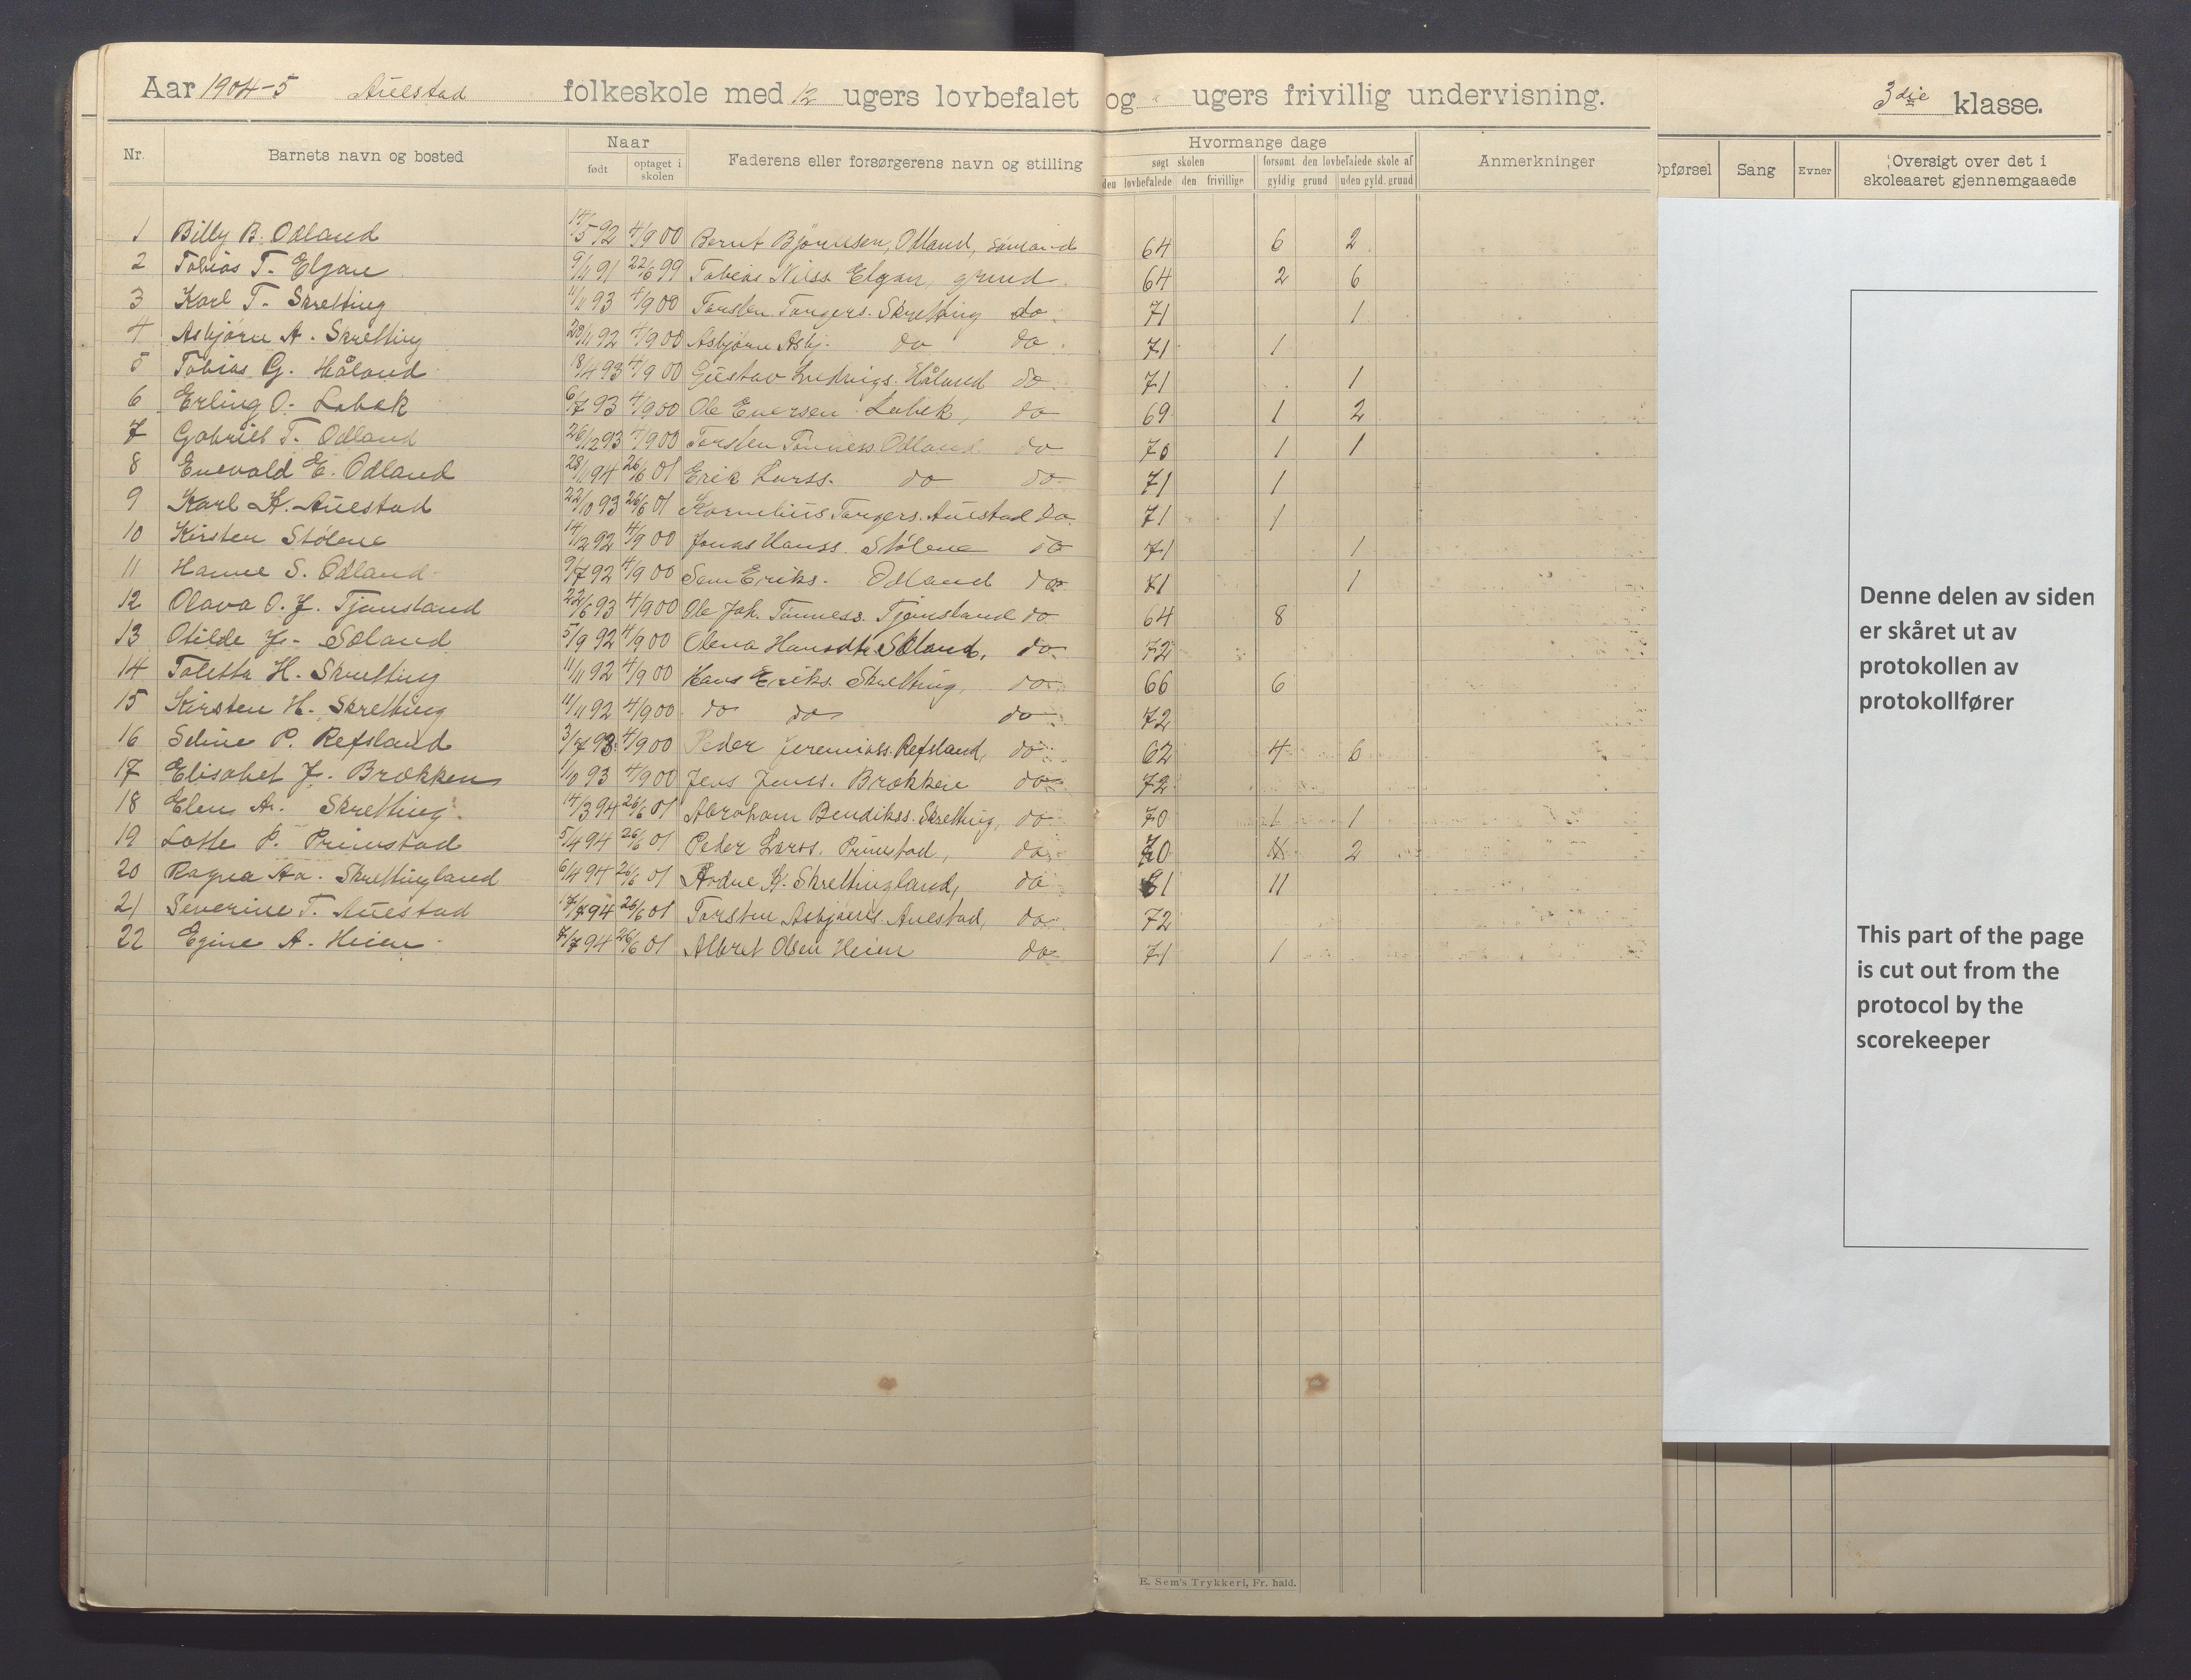 Aar 1904-5 Auestad folkeskole med 12 ugers lovbefalet og ugers frivillig undervisning. 3die klasse.
Nr. Barnets navn og bosted Naar født optaget i skolen Faderens eller forsørgerens navn og stilling Hvormange dage søgt skolen den lovbefalede den frivillige forsømt den lovbefalede skole af gyldig grund uden gyld. grund Anmerkninger Opførsel Sang Evner Oversigt over det i skoleaaret gjennemgaaede
1 Billy B. Odland 5 92 4/9 00 Bernt Bjørnsen, Odland, 64 6 2
2 Tobias T. Elgan 9/11 91 22/6 99 Tobias Nilss. Elgan, grmd. 64 2 6
3 Karl T. Skretting 11/11 93 4/9 00 Torsten Torgers. Skretting do. 71 1
4 Asbjørn A. Skretting 92 4/9 00 Asbjørn Asbj. do do. 71 1
5 Tobias G. Håland 18/4 93 4/9 00 Gustav Ludvigs. Håland do. 71 1
6 Erling O. 6/7 93 4/9 00 Ole do 69 1 2
7 Gabriel T. Odland 26/12 93 4/9 00 Torsten Tønness. Odland do 70 1 1
8 Enevald E. Odland 28/1 94 26/6 01 Erik Larss. do do 71 1
9 Karl K. Auestad 22/10 93 26/6 01 Kornelius Torgers. Auestad do. 71 1
10 Kirsten Stølene 14/12 92 4/9 00 Jonas Hanss. Stølene do 71 1
11 Hanne S. Odland 9/7 92 4/9 00 Sem Eriks. Odland do 71 1
12 Olava O. J. Tjomsland 22/6 93 4/9 00 Ole Joh. Tønness. Tjomsland do 64 8
13 Otilde J. Søland 5/9 92 4/9 00 Olena Hansdtr Søland, do. 72
14 Toletta H. Skretting 11/11 92 4/9 00 Hans Eriks. Skretting, do 66 6
15 Kirsten H. Skretting 11/11 92 4/9 00 do do do 72
16 Seline P. Refsland 3/7 93 4/9 00 Peder Jeremiass. Refsland, do 62 4 6
17 Elisabet J. Brækken 1/10 93 4/9 00 Jens Jenss. Brækken do 72
18 Elen A. Skretting 14/3 94 26/6 01 Abraham Bendikss. Skretting, do 70 1 1
19 Lotte P. Primstad 5/4 94 26/6 01 Peder Larss. Primstad, do 70 2
20 Ragna Aa. Skrettingland 6/4 94 26/6 01 Aadne K. Skrettingland, do 61 11
21 Severine T. Auestad 17/7 94 26/6 01 Torsten Asbjørns. Auestad, do 72
22 Egine A. Heien 7/7 94 26/6 01 Albret Olsen Heien do 71 1
Denne delen av siden
er skåret ut av
protokollen av
protokollfører
This part of the page
is cut out from the
protocol by the
scorekeeper
E. Sem's Trykkeri, Fr. hald.